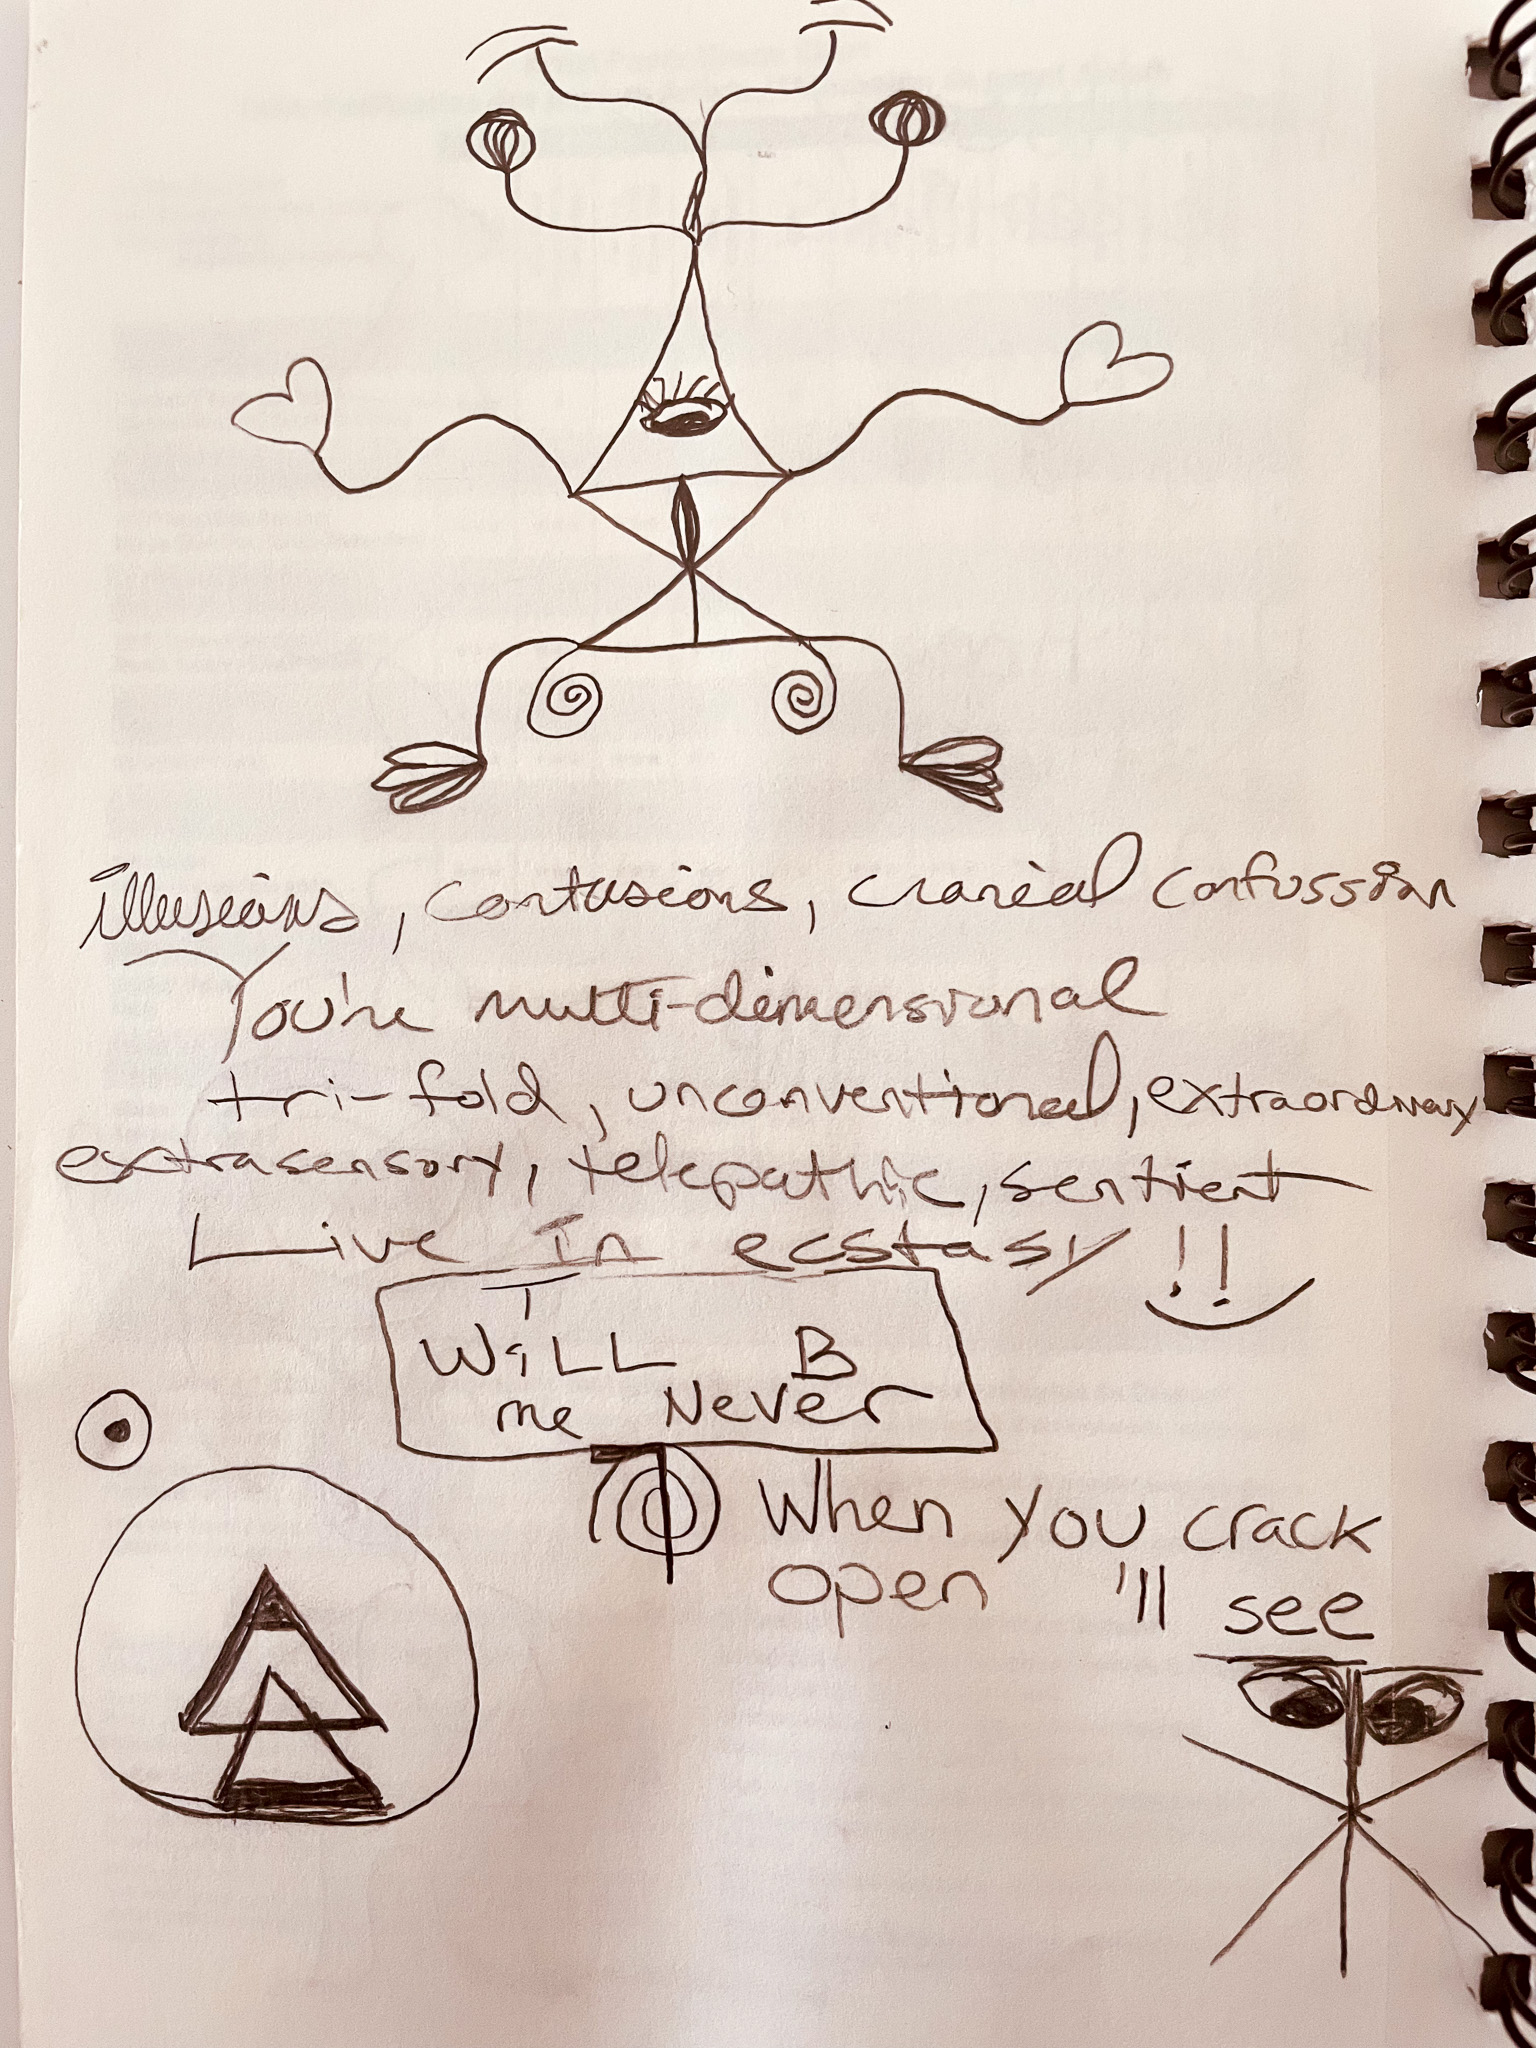 illusions, contusions, cranial confussion
You're multi-dimensional
tri-fold, unconventional, extraordinary
extrasensory, telepathic, sentient
Live In ecstasy!!
I
WiLL B
me Never
When you crack
open 'll see